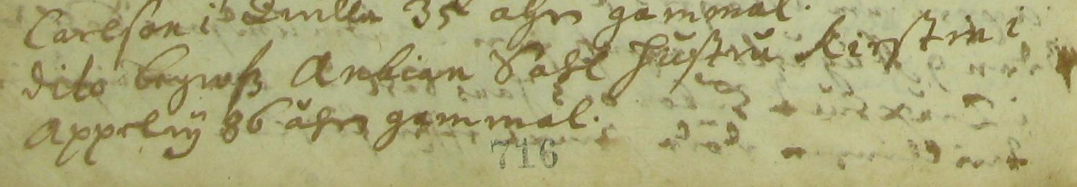 Carlson i Qvilla 35 åhrs gammal.
dito begrofs Ankian Sahl Hustru Kirstin i
Appelrÿ 86 åhrs gammal.
716